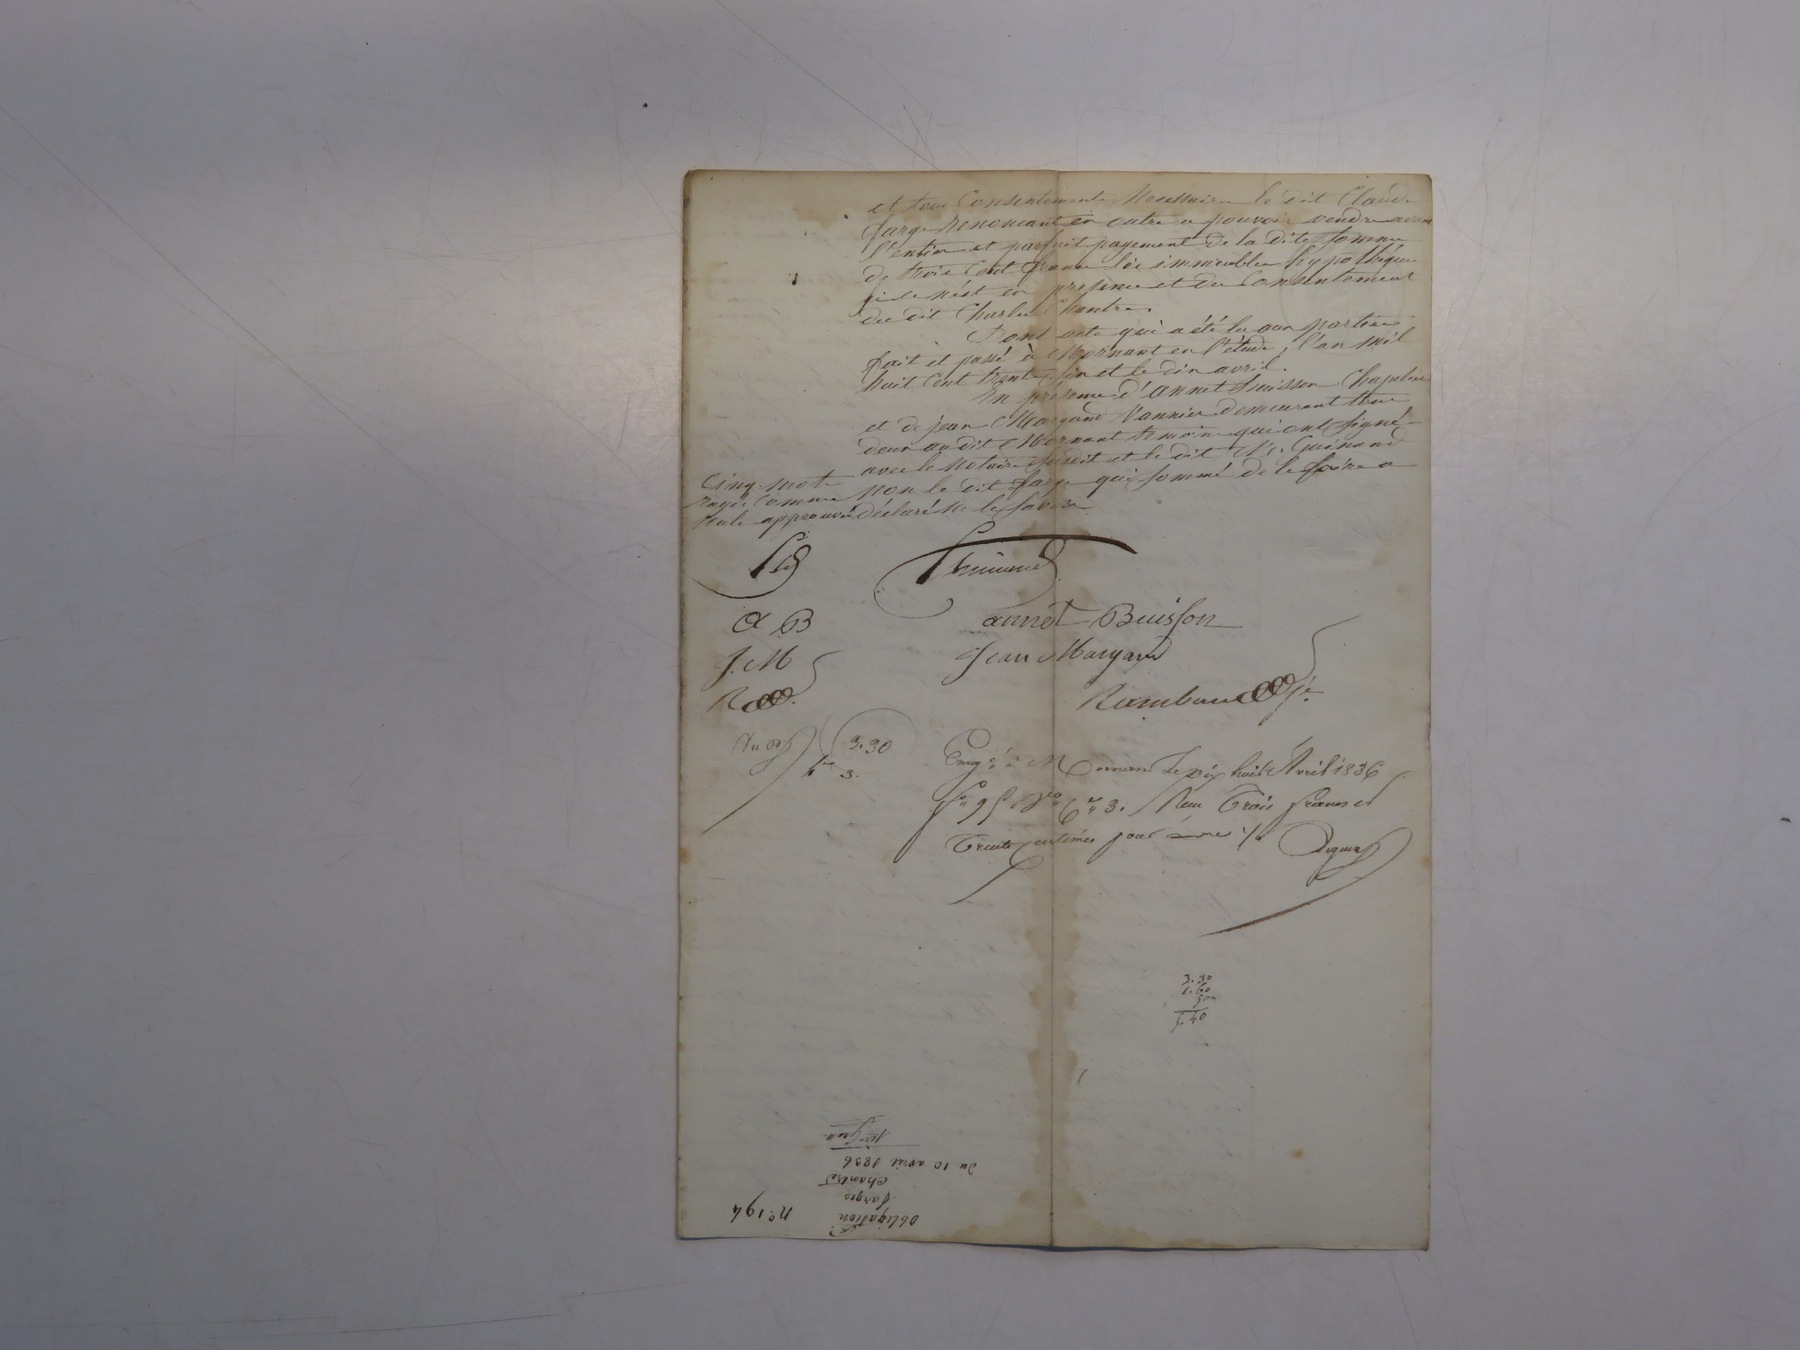 et tous Consentements Necessaires le dit Claude
farge Renoncant en outre a pouvoir vendre avant
l'entier et parfait payement de la dite somme
de trois Cent francs les immeubles hypothéqués
si ce n'est en presence et du Consentement
du dit Charles Chantre.
Dont acte qui a été lu aux parties
fait et passé à Mornant en l'étude, l'an Mil
huit Cent trente six et le dix avril.
En présence d'annet buisson Chapelier
et de jean Margand Vannier demeurant tous
deux au dit Mornant temoins qui ont signé
avec le Notaire susdit et le dit Guinand
Non le dit farge qui sommé de le faire a
déclaré Ne le savoir
Cinq mots
rayés Comme
nuls approuvés
annet Buisson
A B
Jean Margand
J. M
Rambaud
3.30
Enregé à Mornant Le dix huit Avril 1836
Reçu Trois francs et
Trente centimes pour
3.30
1.60
50
5.40
n.° 194
Obligation
farges
Chantre
du 10 avril 1836